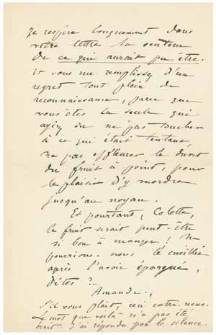 Je respire longuement dans
votre lettre la senteur
de ce qui aurait pu être.
Et vous me remplissez d'un
regret tout plein de
reconnaissance, parce que
vous êtes la seule qui
ayez su ne pas toucher
à ce qui était tentant,
ne pas effleurer le duvet
du fruit à point, pour
le plaisir d'y mordre
jusqu'au noyau.
Et pourtant, Colette,
le fruit serait peut-être
si bon à manger, ne
pourrions-nous le cueillir
après l'avoir épargné,
dites ?
Amande.
S'il vous plaît, ceci entre nous.
Le mot que voilà n'a pas été
écrit. J'ai répondu par le silence.